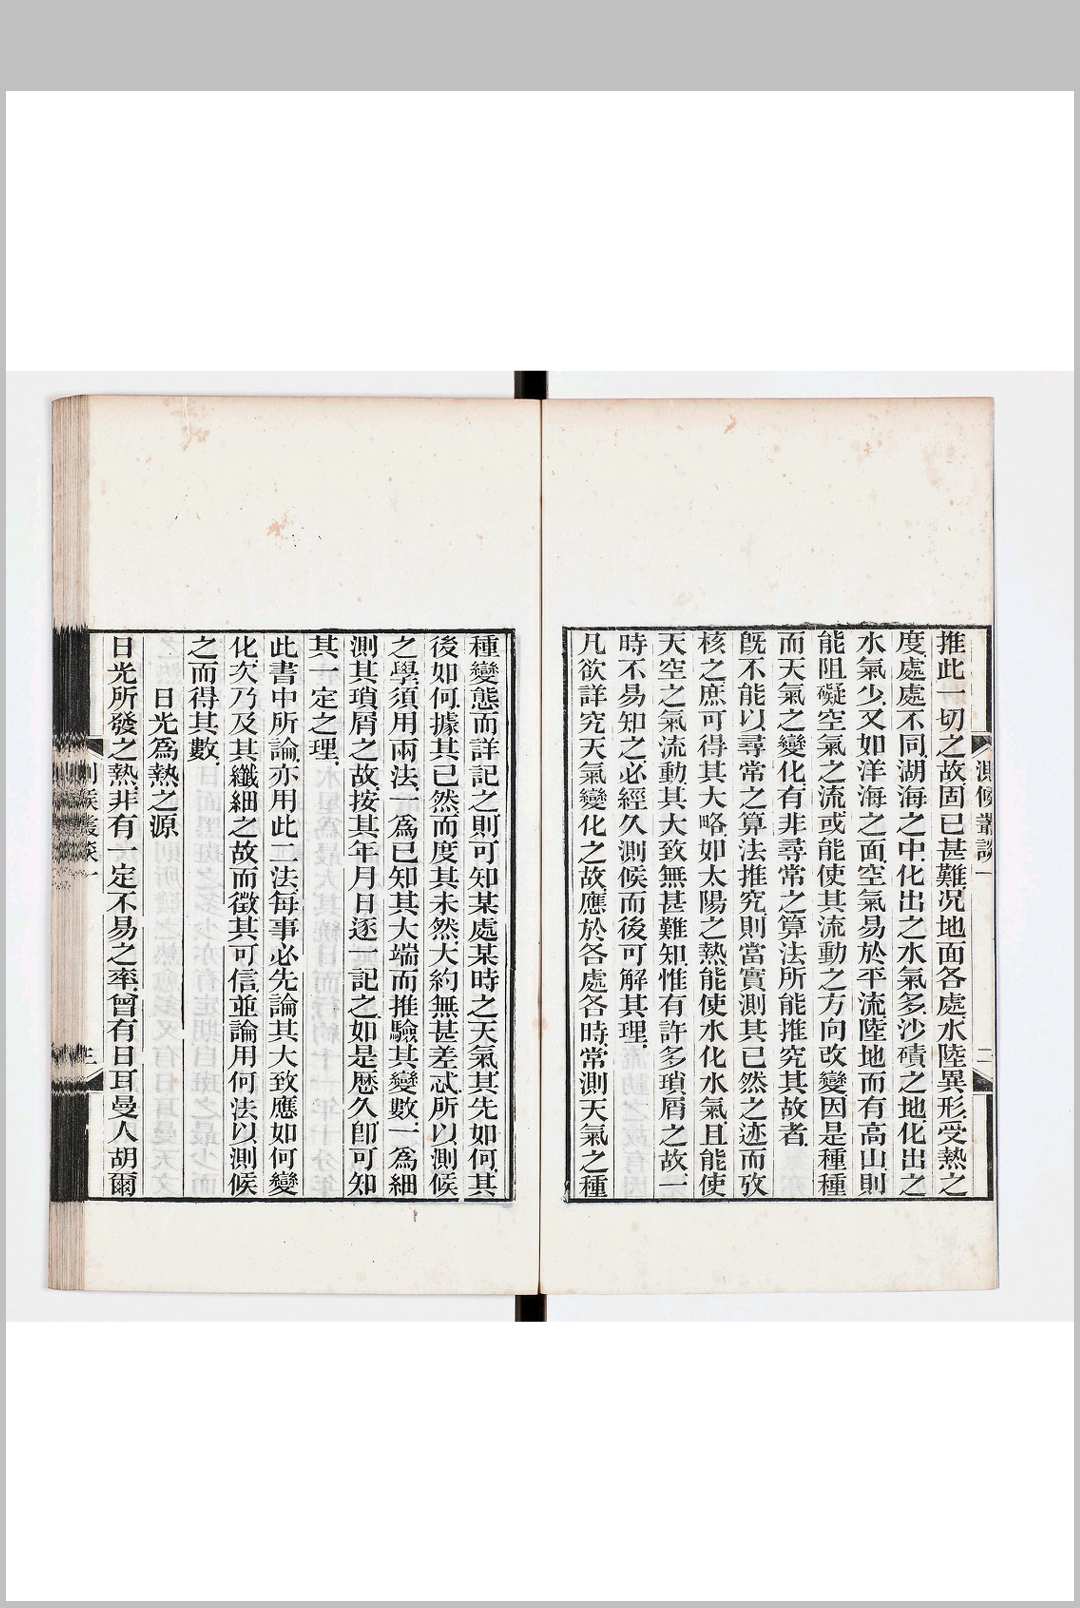 測候叢談一
二
推此一切之故固已甚難況地面各處水陸異形受熱之
度處處不同湖海之中化出之水氣多沙磧之地化出之
水氣少又如洋海之面空氣易於平流陸地而有高山則
能阻礙空氣之流或能使其流動之方向改變因是種種
而天氣之變化有非尋常之算法所能推究其故者
旣不能以尋常之算法推究則當實測其已然之迹而攷
核之庶可得其大略如太陽之熱能使水化水氣且能使
天空之氣流動其大致無甚難知惟有許多瑣屑之故一
時不易知之必經久測候而後可解其理
凡欲詳究天氣變化之故應於各處各時常測天氣之種
種變態而詳記之則可知某處某時之天氣其先如何其
後如何據其已然而度其未然大約無甚差忒所以測候
之學須用兩法一爲已知其大端而推驗其變數一爲細
測其瑣屑之故按其年月日逐一記之如是歷久卽可知
其一定之理
此書中所論亦用此二法每事必先論其大致應如何變
化次乃及其纖細之故而徵其可信並論用何法以測候
之而得其數
日光爲熱之源
日光所發之熱非有一定不易之率曾有日耳曼人胡爾
測候叢談一
三